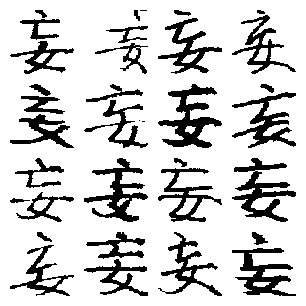 妄妄妄妄
妄妄妄妄
妄妄妄妄
妄妄妄妄